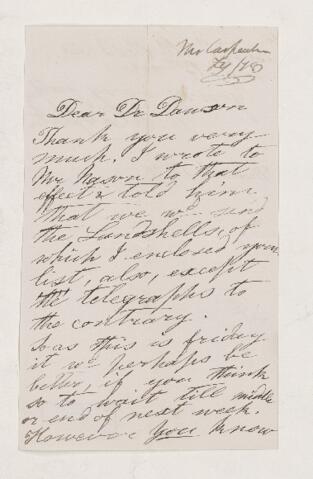 Mrs Carpenter
Fy/78
Dear Dr Dawson
Thank you very
much. I wrote to
Mr Nason to that
effect & told him
that we wd send
the Landshells, of
which I enclosed your
list, also, except
he telegraphs to
the contrary.
So as this is friday
it wd perhaps be
better, if you think
so to wait till middle
or end of next week.
However you know